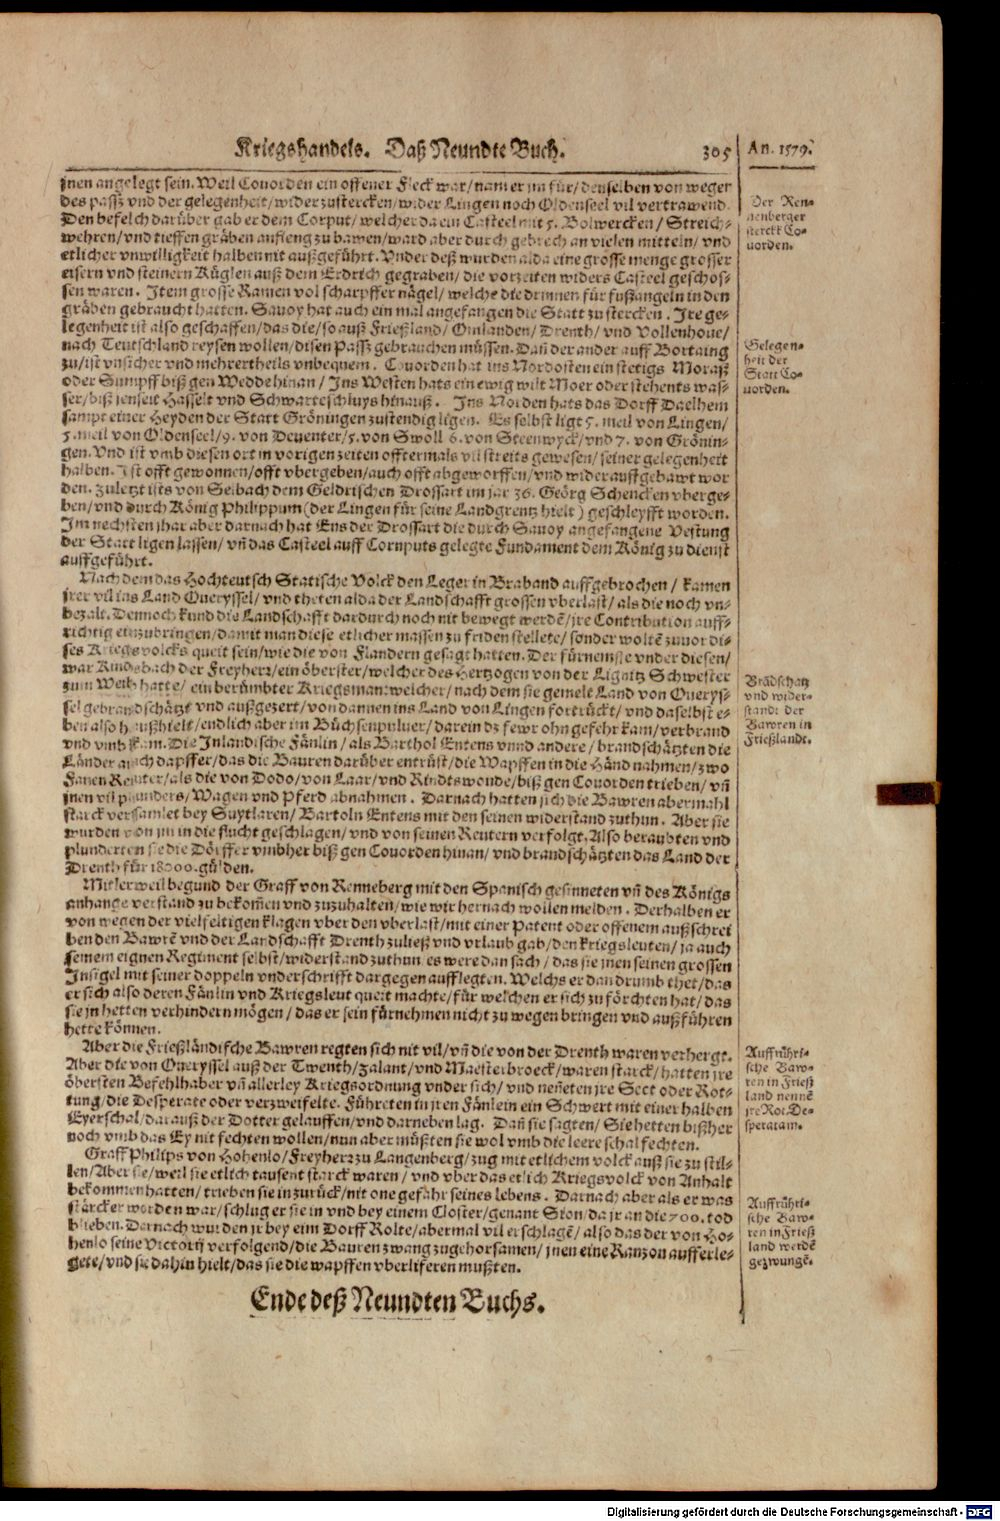 Kriegshandels. Daß Neundte Buch. 305
An. 1579.
jnen angelegt sein. Weil Couorden ein offener Fleck war/ nam er jm für/ denselben von wegen
des passz vnd der gelegenheit/ wider zustercken/ wider Lingen noch Oldenseel vil vertrawend.
Den befelch darüber gab er dem Corput/ welcher da ein Casteel mit 5. Bolwercken/ Streich-
wehren/ vnd tieffen gräben anfieng zu bawen/ ward aber durch gebrech an vielen mitteln/ vnd
etlicher vnwilligkeit halben nit außgeführt. Vnder deß wurden alda eine grosse menge grosser
eisern vnd steinern Küglen auß dem Erdrich gegraben/ die vorzeiten widers Casteel geschos-
sen waren. Item grosse Ramen vol scharpffer nägel/ welche die drinnen für fußangeln in den
gräben gebraucht hatten. Savoy hat auch ein mal angefangen die Statt zu stercken. Ire ge-
legenheit ist also geschaffen/ das die/ so auß Frießland/ Omlanden/ Drenth/ vnd Vollenhoue/
nach Teutschland reysen wollen/ disen Passz gebrauchen müssen. Dañ der ander auff Bortaing
zu/ ist vnsicher vnd mehrertheils vnbequem. Couorden hat ins Nordosten ein stetigs Moraß
oder Sumpff biß gen Wedde hinan/ Ins Westen hats ein ewig wilt Moer oder stehents was-
ser/ biß jenseit Hasselt vnd Schwartesluys hinauß. Ins Norden hats das Dorff Daelhem
sampt einer Heyden der Statt Gröningen zustendig ligen. Es selbst ligt 5. meil von Lingen/
5. meil von Oldenseel/ 9. von Deuenter/ 5. von Swoll 6. von Steenwyck/ vnd 7. von Grönin-
gen. Vnd ist vmb diesen ort in vorigen zeiten offtermals vil streits gewesen/ seiner gelegenheit
halben. Ist offt gewonnen/ offt vbergeben/ auch offt abgeworffen/ vnd wider auffgebawt wor
den. Zuletzt ists von Selbach dem Geldrischen Drossart im jar 36. Geörg Schencken vberge-
ben/ vnd durch König Philippum (der Lingen für seine Landgrentz hielt) geschleyfft worden.
Im nechsten jhar aber darnach hat Ens der Drossart die durch Savoy angefangene Vestung
der Statt ligen lassen/ vñ das Casteel auff Cornputs gelegte Fundament dem König zu dienst
auffgeführt.
Nach dem das Hochteutsch Statische Volck den Leger in Braband auffgebrochen/ kamen
jrer vil ins Land Oueryssel/ vnd theten alda der Landschafft grossen vberlast/ als die noch vn-
bezalt. Dennoch kund die Landschafft dardurch noch nit bewegt werdē/ jre Contribution auff-
richtig einzubringen/ damit man diese etlicher massen zu friden stellete/ sonder woltē zuuor di-
ses Kriegsvolcks queit sein/ wie die von Flandern gesagt hatten. Der fürnemste vnder diesen/
war Kindsbach der Freyherr/ ein öberster/ welcher des Hertzogen von der Lignitz Schwester
zum Weib hatte/ ein berümbter Kriegsman: welcher/ nach dem sie gemelt Land von Querys-
sel gebrandschätzt vnd außgezert/ von dannen ins Land von Lingen fortrückt/ vnd daselbst e-
ben also haußhielt/ endlich aber im Büchsenpuluer/ darein dz fewr ohn gefehr kam/ verbrand
vnd vmb kam. Die Inlandische Fänlin/ als Barthol Entens vnnd andere/ brandschätzten die
Länder auch dapffer/ das die Bauren darüber entrüst/ die Wapffen in die Händ nahmen/ zwo
Fanen Reuter/ als die von Dodo/ von Laar/ vnd Rindtswoude/ biß gen Couorden trieben/ vñ
jnen vil plunders/ Wagen vnd Pferd abnahmen. Darnach hatten sich die Bawren abermahl
starck versamlet bey Suytlaren/ Bartoln Entens mit den seinen widerstand zuthun. Aber sie
wurden von jm in die flucht geschlagen/ vnd von seinen Reutern verfolgt. Also beraubten vnd
plunderten sie die Dörffer vmbher biß gen Couorden hinan/ vnd brandschätzten das Land der
Drenth für 18000. gülden.
Mitlerweil begund der Graff von Renneberg mit den Spanisch gesinneten vñ des Königs
anhange verstand zu bekom̃en vnd zuzuhalten/ wie wir hernach wollen melden. Derhalben er
von wegen der vielfeltigen klagen vber den vberlast/ mit einer Patent oder offenem außschrei
ben den Bawrē vnd der Landschafft Drenth zuließ vnd vrlaub gab/ den kriegsleuten/ ja auch
seinem eignen Regiment selbst/ widerstand zuthun/ es were dan sach/ das sie jnen seinen grossen
Insigel mit seiner doppeln vnderschrifft dargegen aufflegten. Welchs er dan drumb thet/ das
er sich also deren Fänlin vnd Kriegsleut queit machte/ für welchen er sich zu förchten hat/ das
sie jn hetten verhindern mögen/ das er sein fürnehmen nicht zu wegen bringen vnd außführen
hette können.
Aber die Frießländische Bawren regten sich nit vil/ vñ die von der Drenth waren verhergt.
Aber die von Oueryssel auß der Twenth/ Zalant/ vnd Maesterbroeck/ waren starck/ hatten jre
öbersten Befehlhaber vñ allerley Kriegsordnung vnder sich/ vnd neñeten jre Sect oder Rot-
tung/ die Desperate oder verzweifelte. Führeten in jren Fänlein ein Schwert mit einer halben
Eyerschal/ darauß der Dotter gelauffen/ vnd darneben lag. Dañ sie sagten/ Sie hetten bißher
noch vmb das Ey nit fechten wollen/ nun aber müßten sie wol vmb die leere schal fechten.
Graff Philips von Hohenlo/ Freyherr zu Langenberg/ zug mit etlichem volck auß sie zu stil-
len/ Aber sie/ weil sie etlich tausent starck waren/ vnd vber das etlich Kriegsvolck von Anhalt
bekommen hatten/ trieben sie jn zurück/ nit one gefahr seines lebens. Darnach aber als er was
stärcker worden war/ schlug er sie in vnd bey einem Closter/ genant Sion/ da jr an die 700. tod
blieben. Dernach wurden jr bey eim Dorff Rolte/ abermal vil erschlagē/ also das der von Ho-
henlo seine Victorij verfolgend/ die Bauren zwang zugehorsamen/ jnen eine Ranzon aufferle-
gete/ vnd sie dahin hielt/ das sie die wapffen vberliferen mußten.
Ende deß Neundten Buchs.
Der Ren-
nenberger
sterckt Co-
uorden.
Gelegen-
heit der
Statt Co-
uorden.
Brãdschatz
vnd wider-
standt der
Bawren in
Frießlandt.
Auffrühri-
sche Baw-
ren in Frieß
land nennē
jre Rot De-
speratam.
Auffrühri-
sche Baw-
ren in Frieß
land werdē
gezwungē.
Digitalisierung gefördert durch die Deutsche Forschungsgemeinschaft - DFG